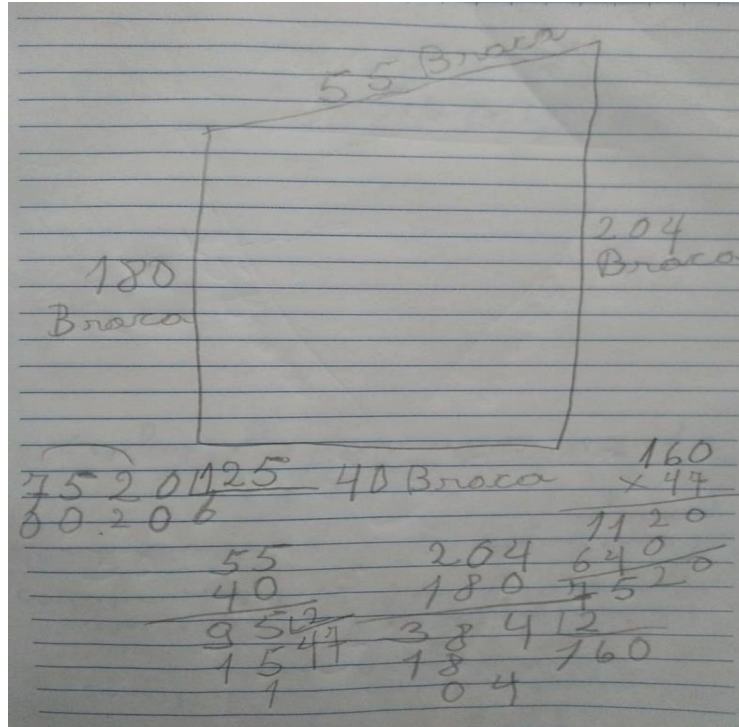 55 Braca
180
Braca
204
Braca
40 Braca
7520 125
00.20 6
160
× 47
1120
640
7520
55
40
95 2
15 47
1
204
180
384 2
18 160
04